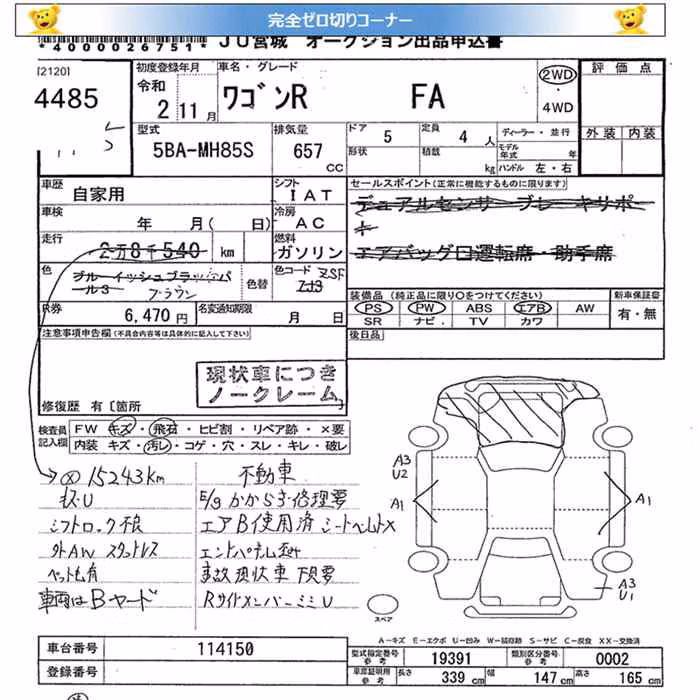 完全ゼロ切りコーナー
*4000026751* JU宮城 オークション出品申込書
[2120]
4485
初度登録年月
令和
2 11月
車名・グレード
ワゴンR FA
2WD
4WD
評価点
外装 内装
型式
5BA-MH85S
排気量
657 CC
ドア 5
定員 4人
形状
積載 kg
ディーラー・並行
モデル年式 年
ハンドル 左・右
車歴
自家用
シフト
IAT
セールスポイント(正常に機能するものに限ります)
デュアルセンサーブレーキサポート
エアバッグ口運転席・助手席
車検
年 月( 日)
冷房
AC
走行
2万8千540 km
燃料
ガソリン
色
ブルーイッシュブラックパール3
ブラウン
色替
色コード
ZSF
ZJ3
装備品(純正品に限り○をつけてください)
PS PW ABS エアB AW
SR ナビ TV カワ
新車保証書
有・無
R券
6,470円
名変通知期限
月 日
後日品
注意事項申告欄(不具合内容等は具体的に記入して下さい)
現状車につき
ノークレーム
修復歴 有〔箇所
検査員記入欄
FW キズ・飛石・ヒビ割・リペア跡・×要
内装 キズ・汚レ・コゲ・穴・スレ・キレ・破レ
15243km
キズU
シフトロック不良
外AWスタッドレス
ペット毛有
車両はBヤード
不動車
E/gかからず修理要
エアB使用済シートベルト×
事故現状車下見要
RサイドメンバーミミU
A3
U2
A1
A1
A3
U1
スペア
A-キズ E-エクボ U-凹み W-補修跡 S-サビ C-腐食 XX-交換済
車台番号
114150
登録番号
型式指定番号
参考
19391
類別区分番号
参考
0002
車庫証明用
参考
長さ 339 cm
幅 147 cm
高さ 165 cm